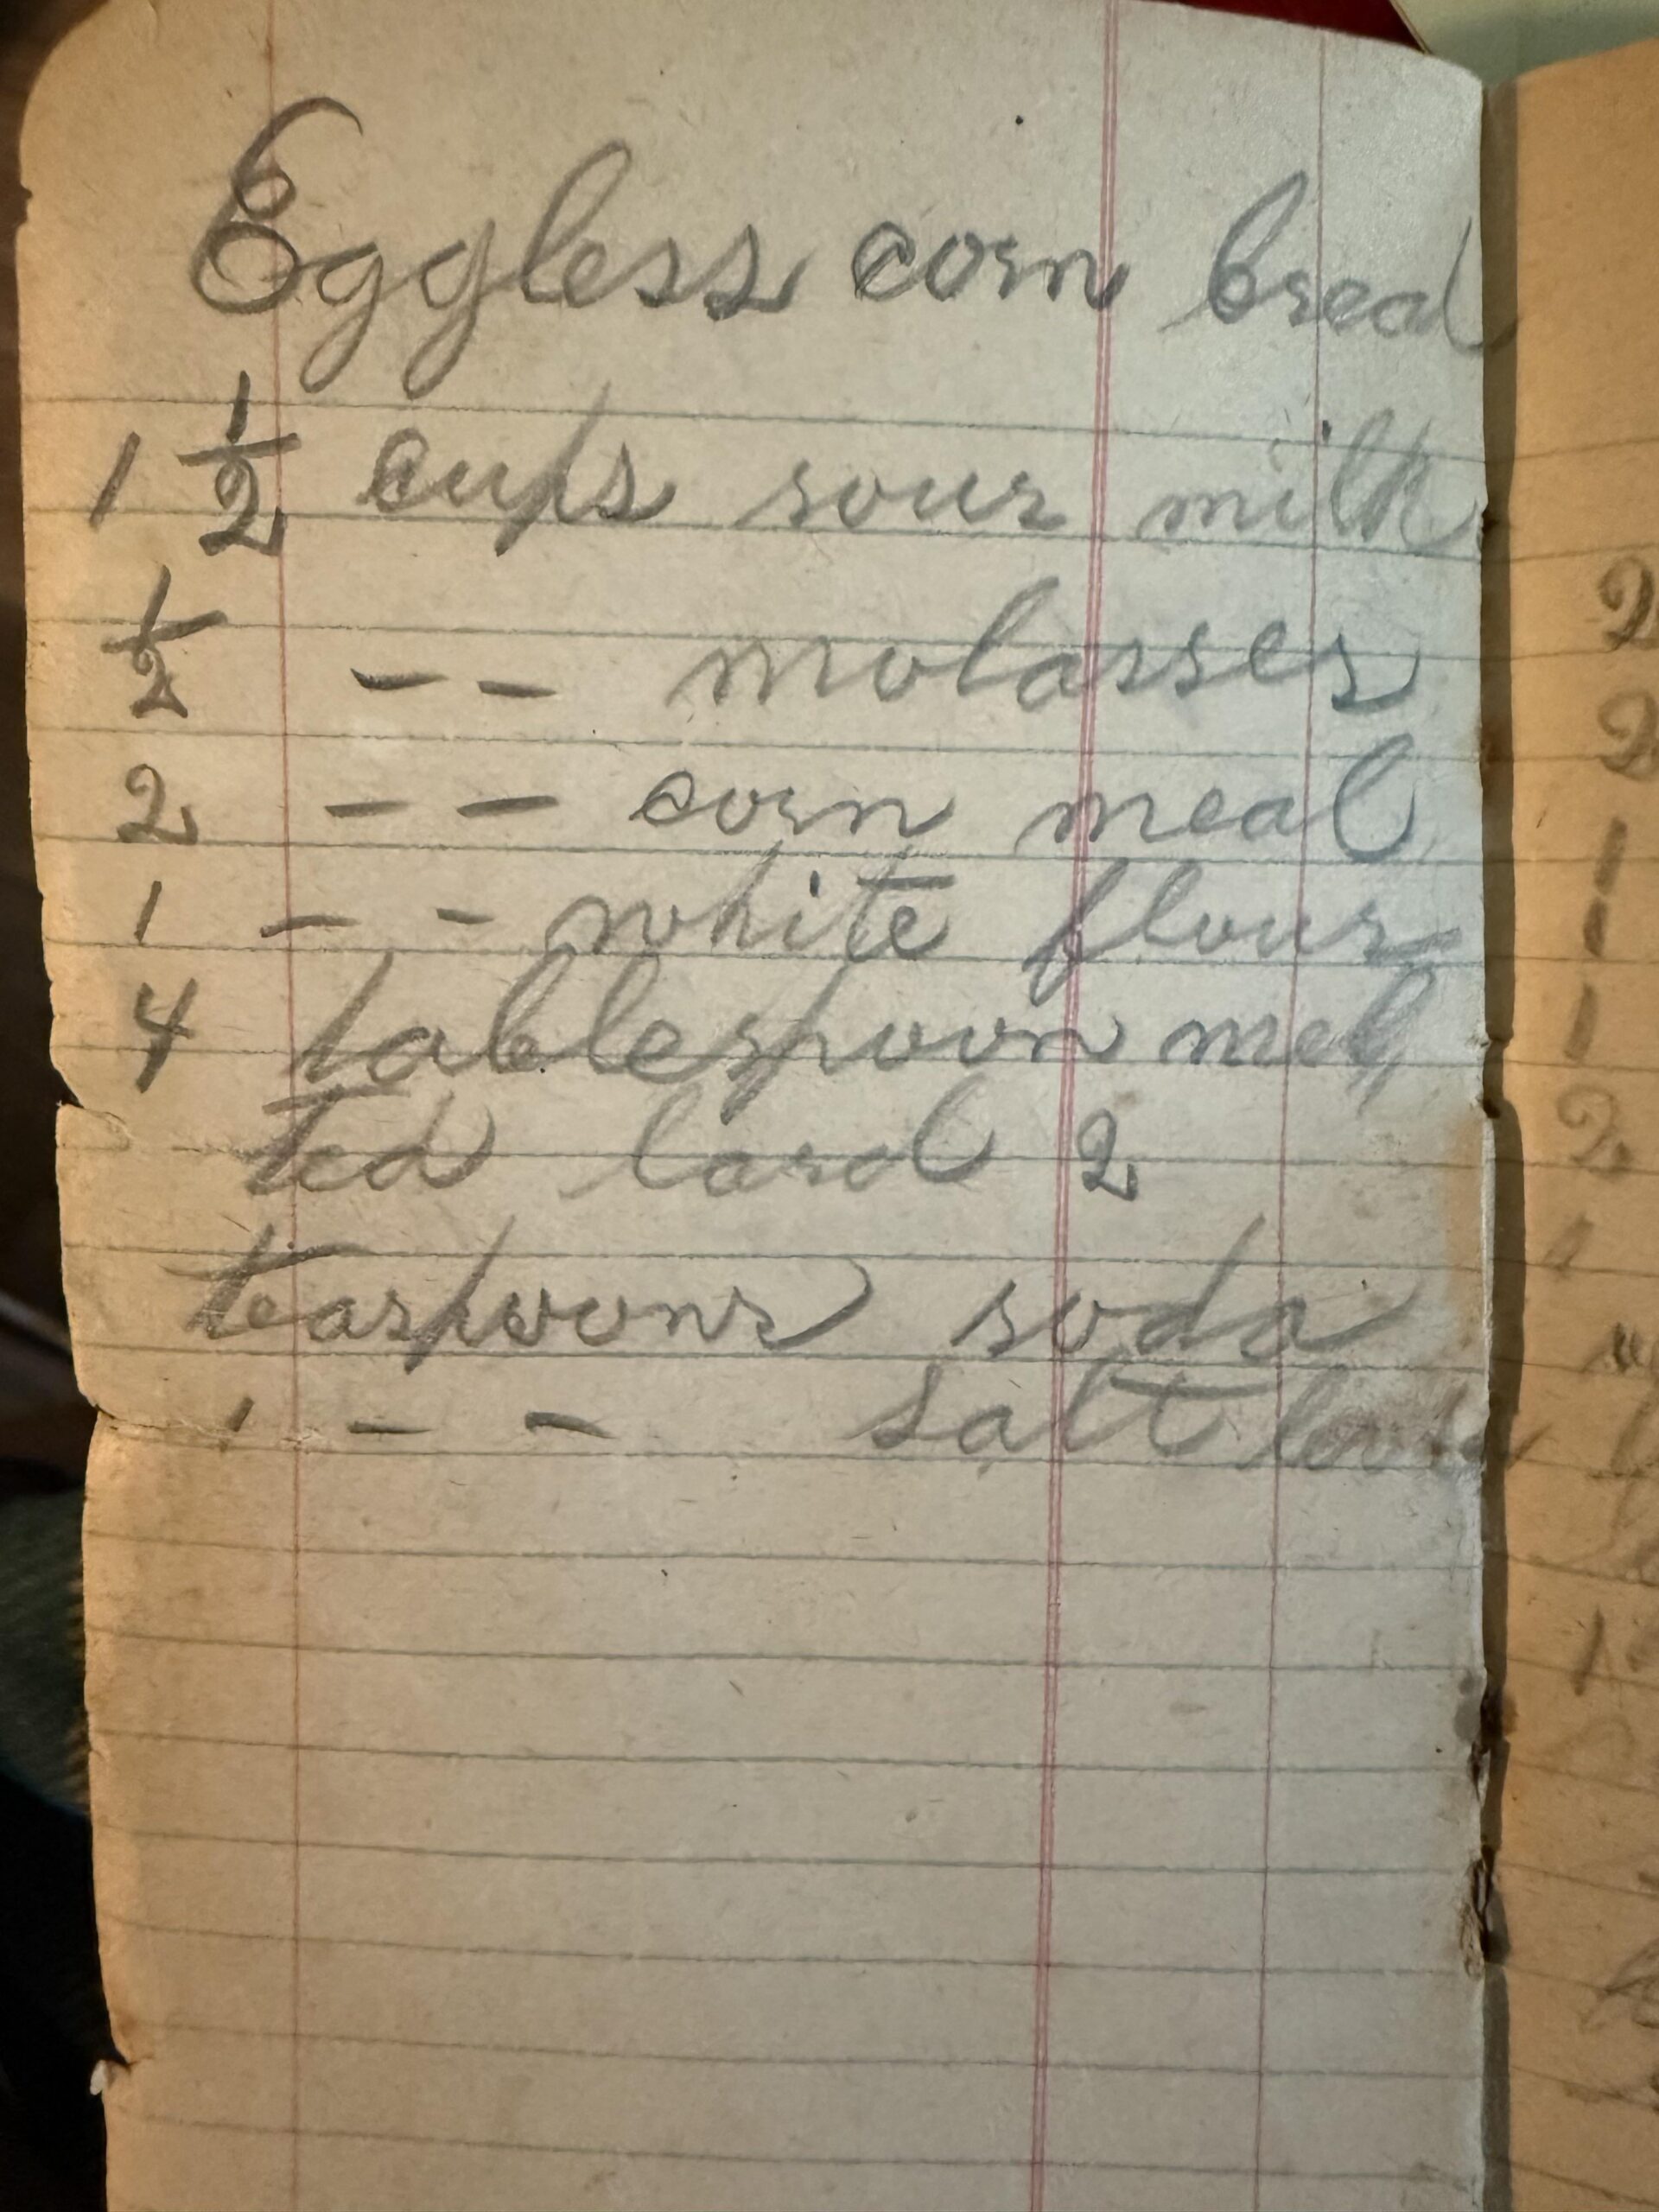 Eggless corn bread
1 1/2 cups sour milk
1/2 - - molasses
2 - - corn meal
1 - - white flour
4 tablespoon mel
ted lard 2
teaspoons soda
1 - - salt
2
2
1
1
1
2
1